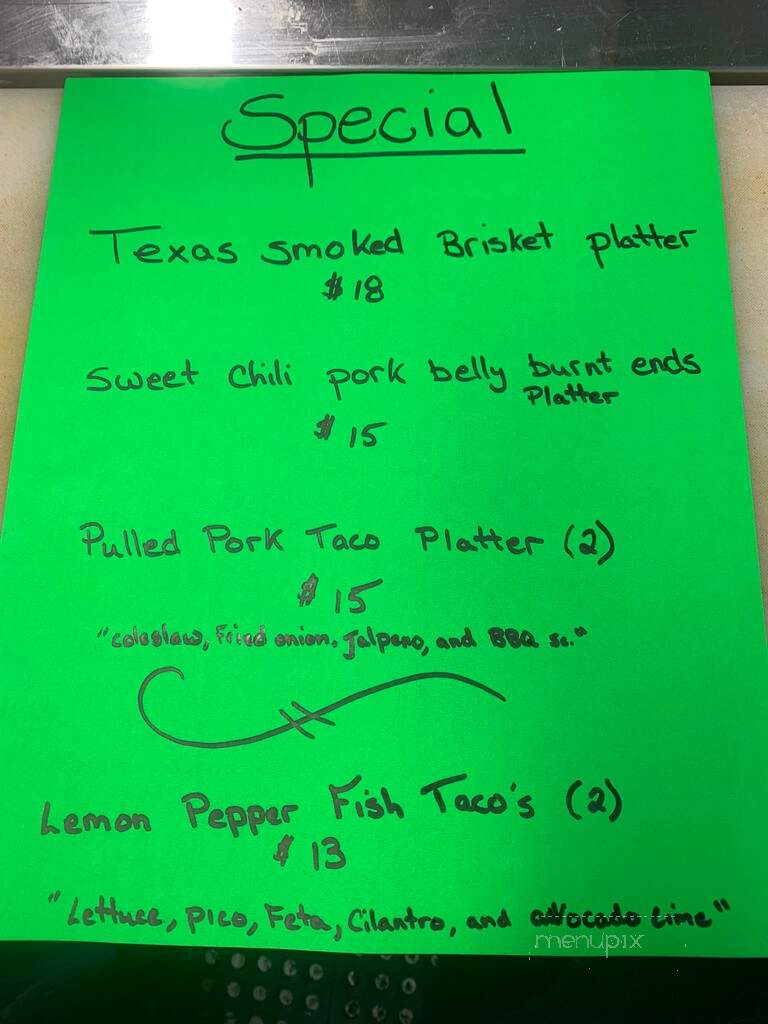 Special
Texas smoked Brisket platter
$18
Sweet Chili pork belly burnt ends
Platter
$15
Pulled Pork Taco Platter (2)
$15
"coleslaw, Fried onion, Jalpeno, and BBQ sc."
Lemon Pepper Fish Taco's (2)
$13
"Lettuce, Pico, Feta, Cilantro, and avocado lime"
menupix